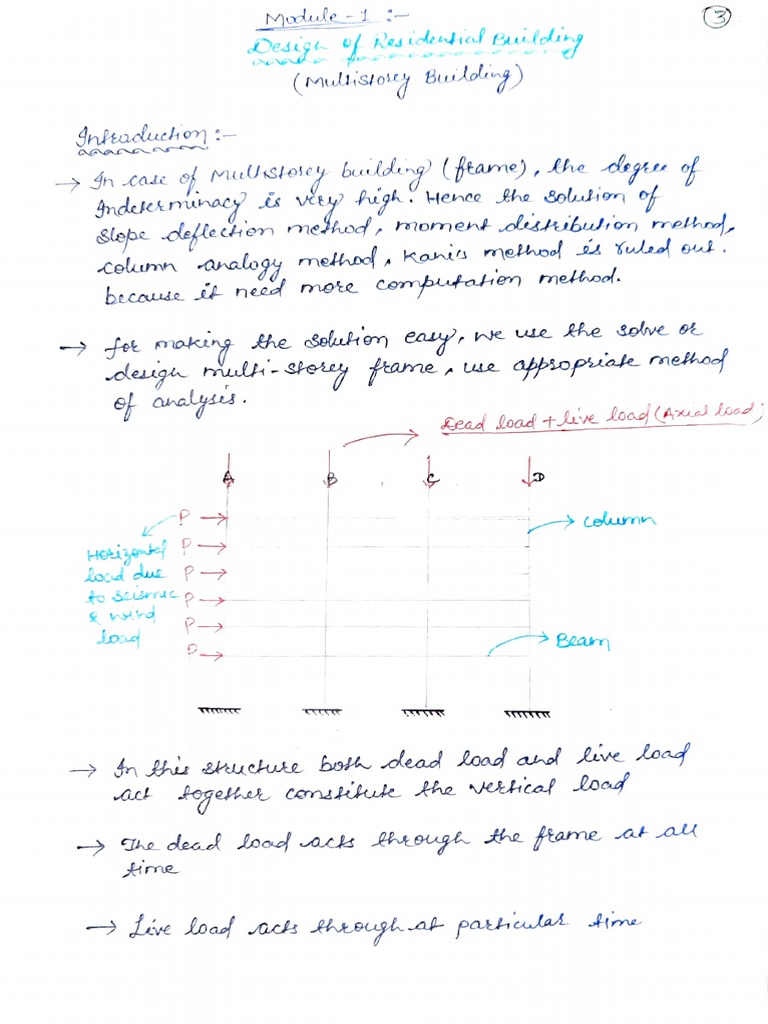 Module-1 :-
3
Design of Residential Building
(Multistorey Building)
Introduction :-
→ In case of Multistorey building (frame), the degree of
Indeterminacy is very high. Hence the solution of
slope deflection method, moment distribution method,
column analogy method, Kani's method is ruled out.
because it need more computation method.
→ for making the solution easy, we use the solve or
design multi-storey frame, use appropriate method
of analysis.
Dead load + live load (Axial load)
A B C D
P
P
P
P
P
P
Horizontal
load due
to seismic
& wind
load
Column
Beam
→ In this structure both dead load and live load
act together constitute the vertical load
→ The dead load acts through the frame at all
time
→ Live load acts through at particular time